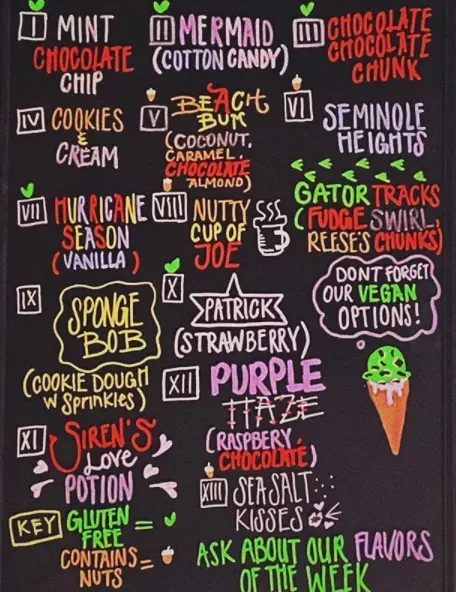 I MINT
CHOCOLATE
CHIP
II MERMAID
(COTTON CANDY)
III CHOCOLATE
CHOCOLATE
CHUNK
IV COOKIES
&
CREAM
V BEACH
BUM
(COCONUT,
CARAMEL,
CHOCOLATE
ALMOND)
VI SEMINOLE
HEIGHTS
GATOR TRACKS
(FUDGE SWIRL,
REESE'S CHUNKS)
VII HURRICANE
SEASON
(VANILLA)
VIII NUTTY
CUP OF
JOE
DONT FORGET
OUR VEGAN
OPTIONS!
IX SPONGE
BOB
(COOKIE DOUGH
W SPRiNKlES)
X PATRICK
(STRAWBERRY)
XI SIREN'S
LOVE
POTION
XII PURPLE
HAZE
(RASPBERY,
CHOCOLATE)
XIII SEA SALT
KISSES
KEY GLUTEN
FREE =
CONTAINS
NUTS =
ASK ABOUT OUR FLAVORS
OF THE WEEK